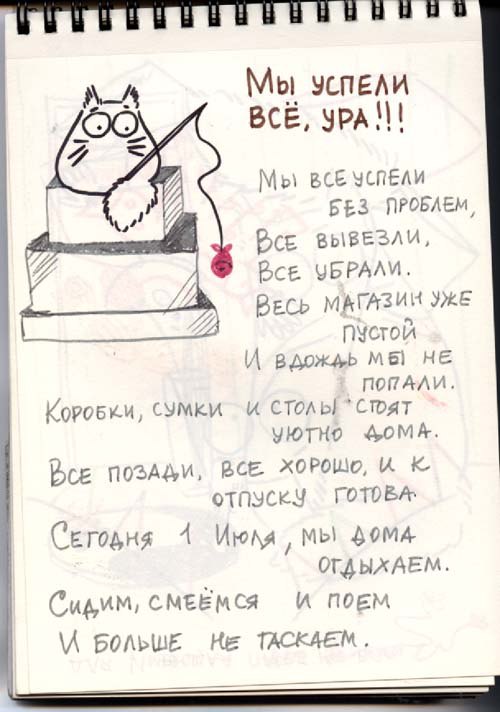 Мы успели
всё, ура!!!
Мы все успели
без проблем,
Все вывезли,
Все убрали.
Весь магазин уже
пустой
И в дождь мы не
попали.
Коробки, сумки и столы стоят
уютно дома.
Все позади, все хорошо, и к
отпуску готова.
Сегодня 1 Июля, мы дома
отдыхаем.
Сидим, смеёмся и поем
И больше не таскаем.